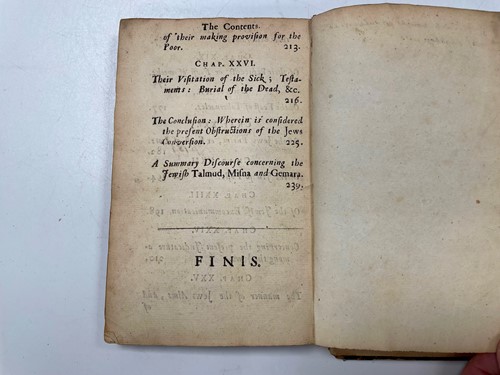 The Contents.
of their making provision for the
Poor. 213.
CHAP. XXVI.
Their Viſitation of the Sick; Teſta-
ments: Burial of the Dead, &c.
216.
The Concluſion: Wherein is conſidered
the preſent Obſtructions of the Jews
Converſion. 225.
A Summary Diſcourſe concerning the
Jewiſh Talmud, Miſna and Gemara.
239.
FINIS.